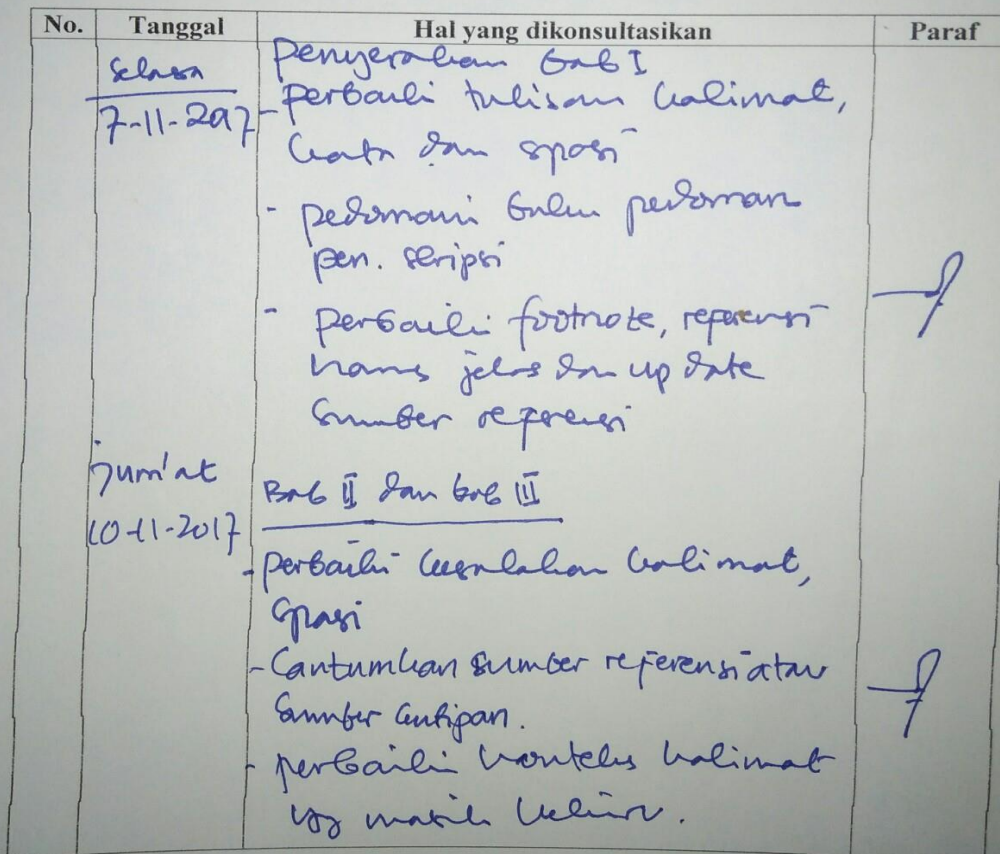 No. Tanggal Hal yang dikonsultasikan Paraf
Selasa Penyerahan Bab I
7-11-2017 - perbaiki tulisan kalimat,
kata dan spasi
- pedomani buku pedoman
pen. skripsi
- perbaiki footnote, referensi
harus jelas dan up date
sumber referensi
Jum'at Bab II dan bab III
10-11-2017
- perbaiki kesalahan kalimat,
spasi
- Cantumkan sumber referensi atau
sumber kutipan.
- perbaiki konteks kalimat
yg masih keliru.